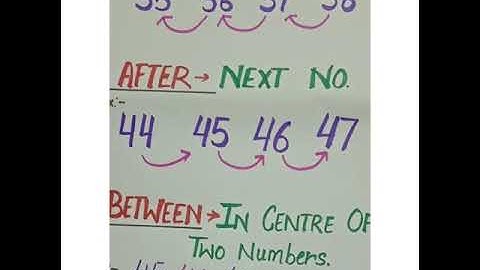 35 36 37 38
AFTER → NEXT NO.
x:-
44 45 46 47
BETWEEN → IN CENTRE OF
TWO Numbers.